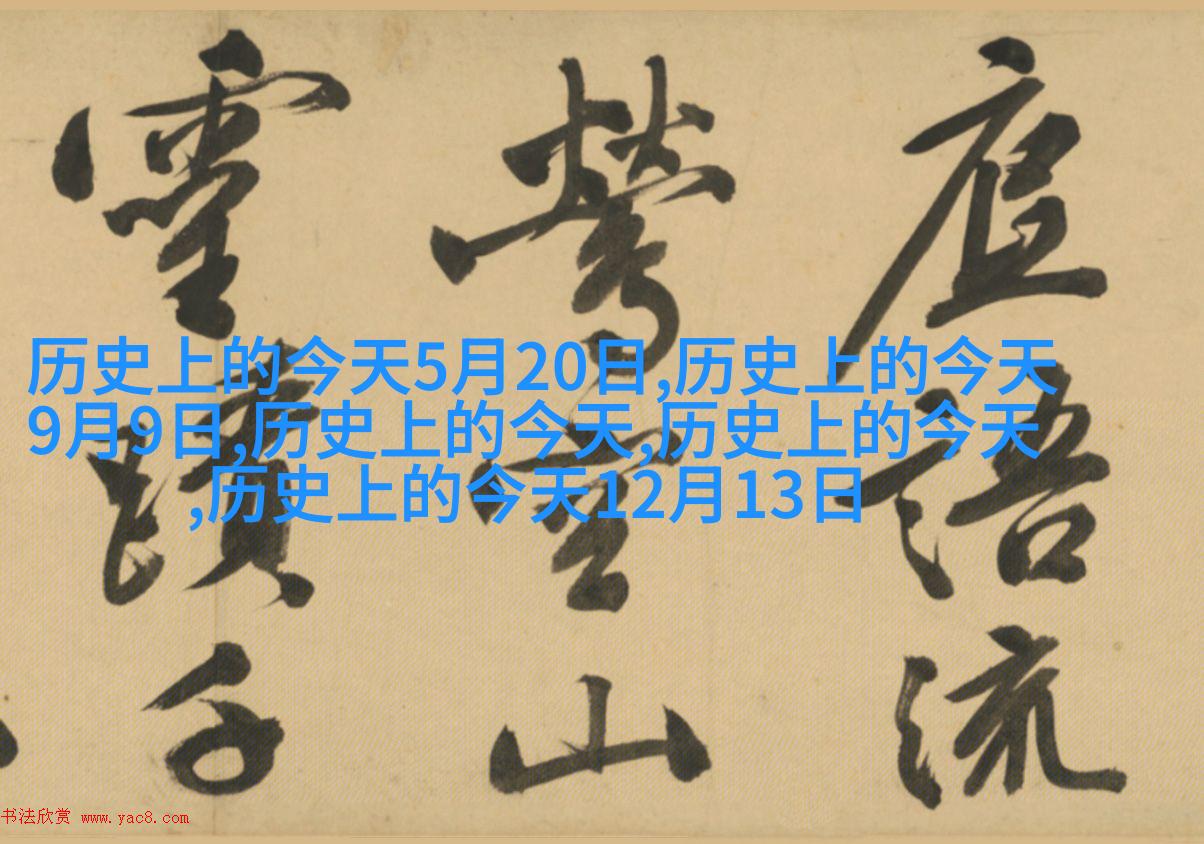 庭語流
鶯空山
靈蹟千
历史上的今天5月20日,历史上的今天
9月9日,历史上的今天,历史上的今天
,历史上的今天12月13日
书法欣赏 www.yac8.com